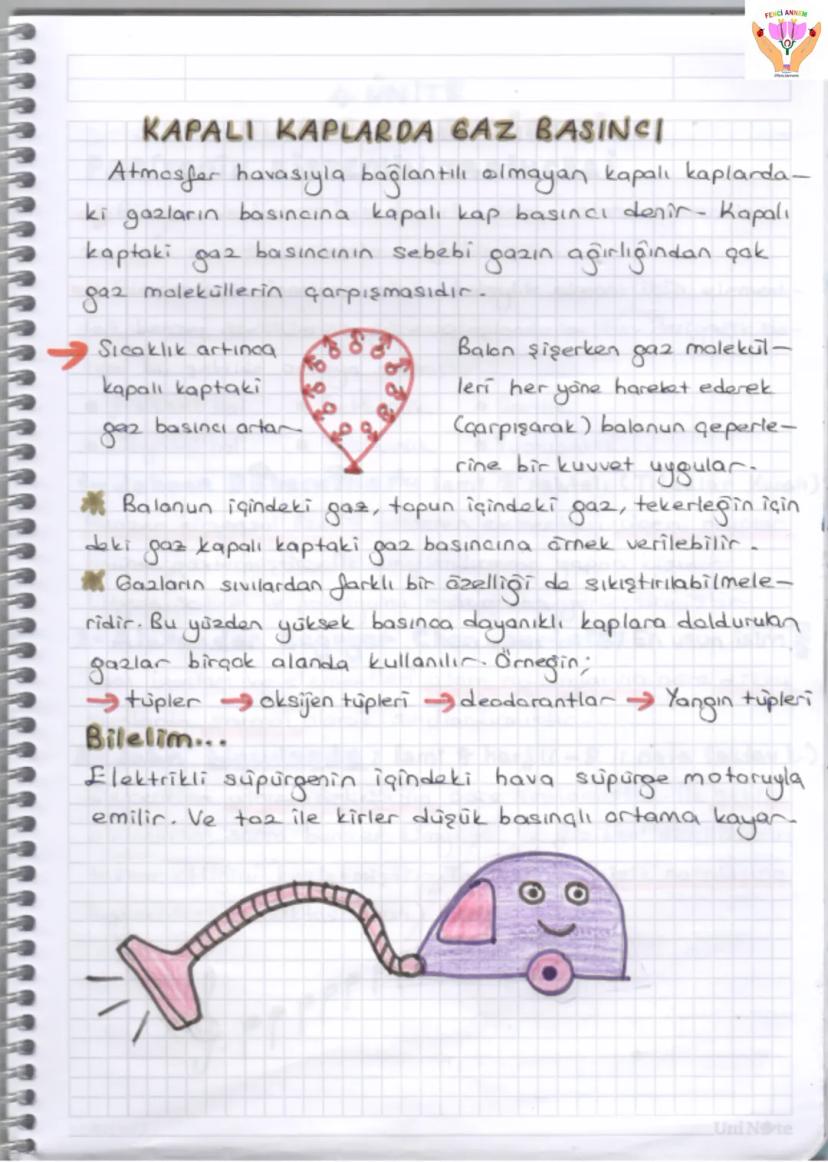 FENCİ ANNEM
KAPALI KAPLARDA GAZ BASINCI
Atmosfer havasıyla bağlantılı olmayan kapalı kaplarda-
ki gazların basıncına kapalı kap basıncı denir. Kapalı
kaptaki gaz basıncının sebebi gazın ağırlığından çok
gaz moleküllerin çarpışmasıdır.
→ Sıcaklık artınca
kapalı kaptaki
gaz basıncı artar
Balon şişerken gaz molekül-
leri her yöne hareket ederek
(çarpışarak) balonun çeperle-
rine bir kuvvet uygular.
Balonun içindeki gaz, topun içindeki gaz, tekerleğin için
deki gaz kapalı kaptaki gaz basıncına örnek verilebilir.
Gazların sıvılardan farklı bir özelliği de sıkıştırılabilmele-
ridir. Bu yüzden yüksek basınca dayanıklı kaplara doldurulan
gazlar birçok alanda kullanılır. Örneğin;
→ tüpler → oksijen tüpleri → deodorantlar → Yangın tüpleri
Bilelim...
Elektrikli süpürgenin içindeki hava süpürge motoruyla
emilir. Ve toz ile kirler düşük basınçlı ortama kayar.
UniNote